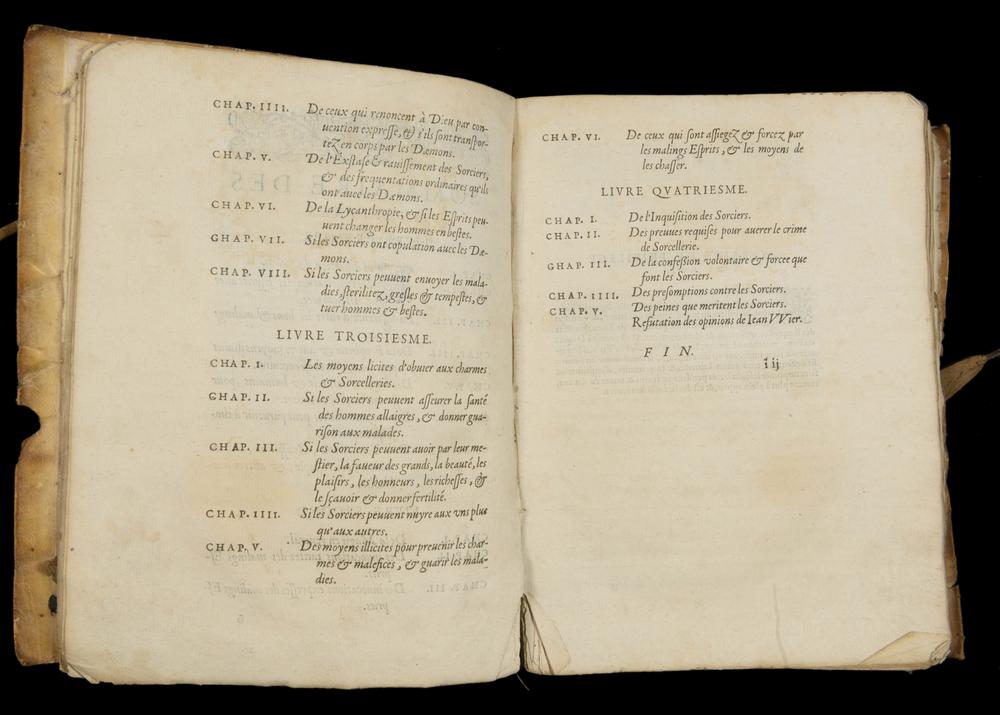 CHAP. IIII. De ceux qui renoncent à Dieu par con-
uention expresse, & s'ils sont transpor-
tez en corps par les Dæmons.
CHAP. V. De l'Exstase & rauissement des Sorciers,
& des frequentations ordinaires qu'ils
ont auec les Dæmons.
CHAP. VI. De la Lycanthropie, & si les Esprits peu-
uent changer les hommes en bestes.
CHAP. VII. Si les Sorciers ont copulation auec les Dæ-
mons.
CHAP. VIII. Si les Sorciers peuuent enuoyer les mala-
dies, sterilitez, gresles & tempestes, &
tuer hommes & bestes.
LIVRE TROISIESME.
CHAP. I. Les moyens licites d'obuier aux charmes
& Sorcelleries.
CHAP. II. Si les Sorciers peuuent asseurer la santé
des hommes allaigres, & donner gua-
rison aux malades.
CHAP. III. Si les Sorciers peuuent auoir par leur me-
stier, la faueur des grands, la beauté, les
plaisirs, les honneurs, les richesses, &
le sçauoir & donner fertilité.
CHAP. IIII. Si les Sorciers peuuent nuyre aux vns plus
qu'aux autres.
CHAP. V. Des moyens illicites pour preuenir les char-
mes & malefices, & guarir les mala-
dies.
CHAP. VI. De ceux qui sont assiegez & forcez par
les malings Esprits, & les moyens de
les chasser.
LIVRE QVATRIESME.
CHAP. I. De l'Inquisition des Sorciers.
CHAP. II. Des preuues requises pour auerer le crime
de Sorcellerie.
CHAP. III. De la confession volontaire & forcee que
font les Sorciers.
CHAP. IIII. Des presomptions contre les Sorciers.
CHAP. V. Des peines que meritent les Sorciers.
Refutation des opinions de Iean VVier.
FIN.
ij